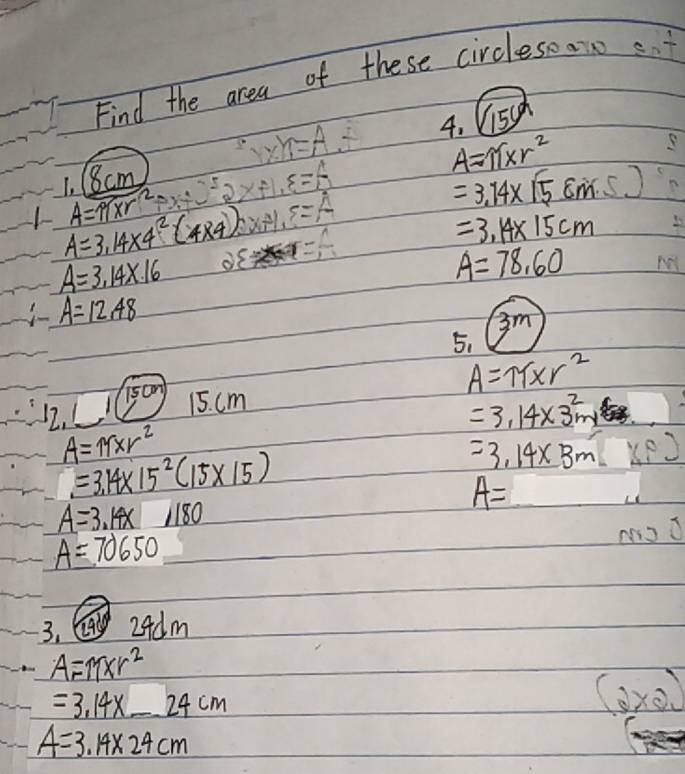 Find the area of these circles
1. 8cm
A=πxr²
A=3.14x4²(4x4)
A=3.14x16
A=12.48
2. 15cm 15.cm
A=πxr²
=3.14x15²(15x15)
A=3.14x 180
A=70650
3. 24dm
A=πxr²
=3.14x 24cm
A=3.14x24cm
4.
A=πxr²
=3.14x
=3.14x15cm
A=78.60
5. 3m
A=πxr²
=3.14x3²m
=3.14x3m
A=